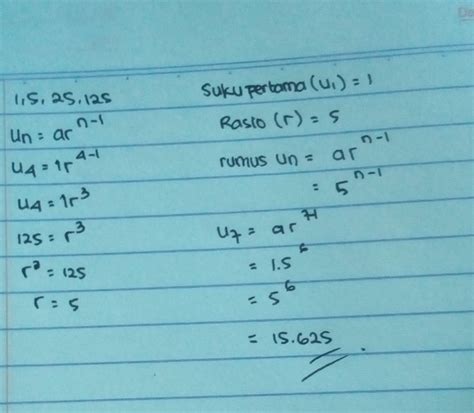 1, 5, 25, 125
Un = ar^n-1
U4 = 1r^4-1
U4 = 1r^3
125 = r^3
r^3 = 125
r = 5
Suku pertama (U1) = 1
Rasio (r) = 5
rumus Un = ar^n-1
= 5^n-1
U7 = ar^7-1
= 1.5^6
= 5^6
= 15.625